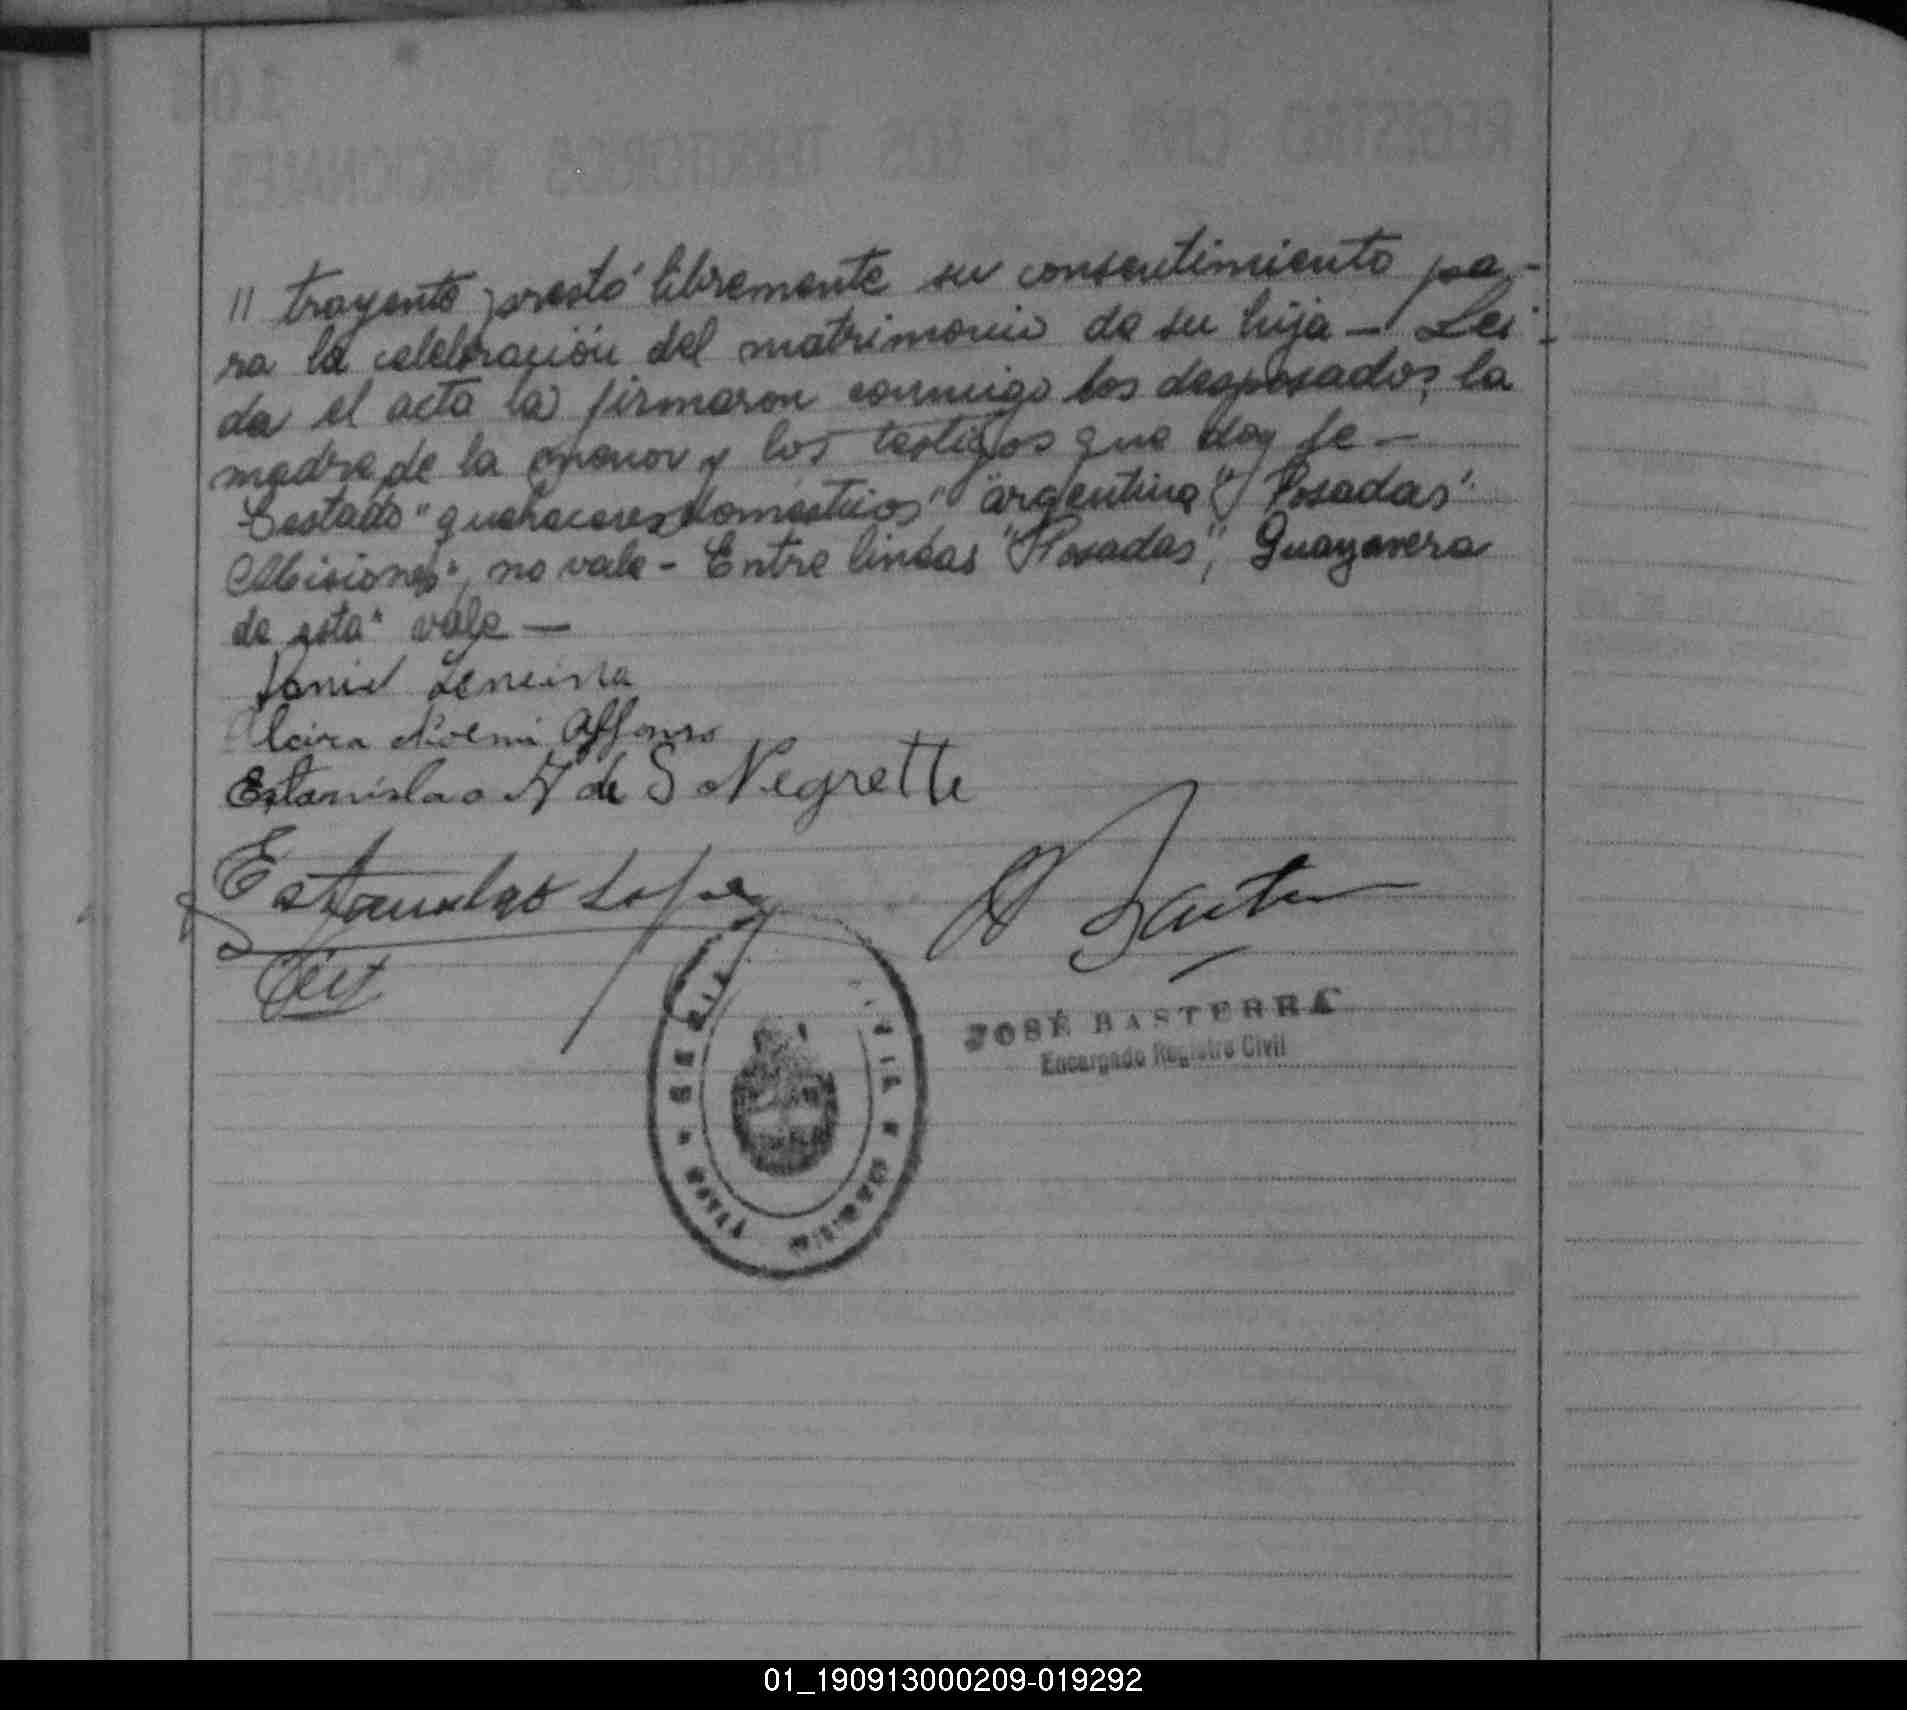 // trayente prestó libremente su consentimiento pa-
ra la celebración del matrimonio de su hija — Leí-
da el acta la firmaron conmigo los desposados, la
madre de la menor y los testigos que doy fe —
Testado "quehaceres domésticos" "argentina" "Posadas"
"Misiones", no vale - Entre lineas "Posadas", Guayavera
de esta" vale —
Alcira Noemi Affonso
Estanislao N de S Negrette
Estanislao Lopez
JOSÉ BASTERRA
Encargado Registro Civil
01_190913000209-019292